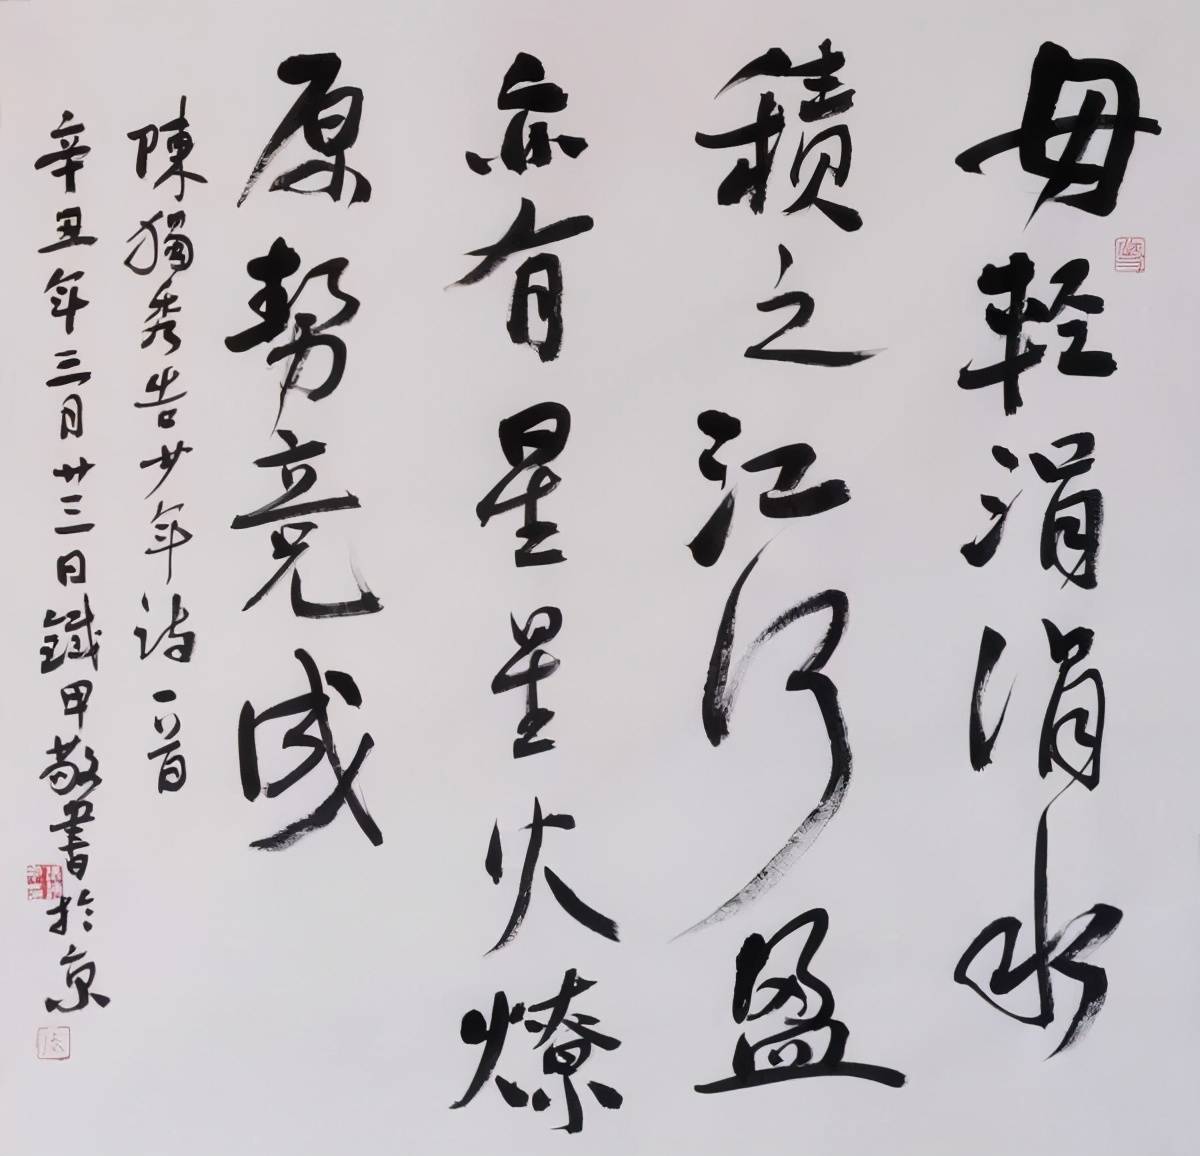 毋輕涓涓水
積之江河盈
亦有星星火燎
原勢竞成
陳獨秀告少年詩一首
辛丑年三月廿三日鐵甲敬書於京